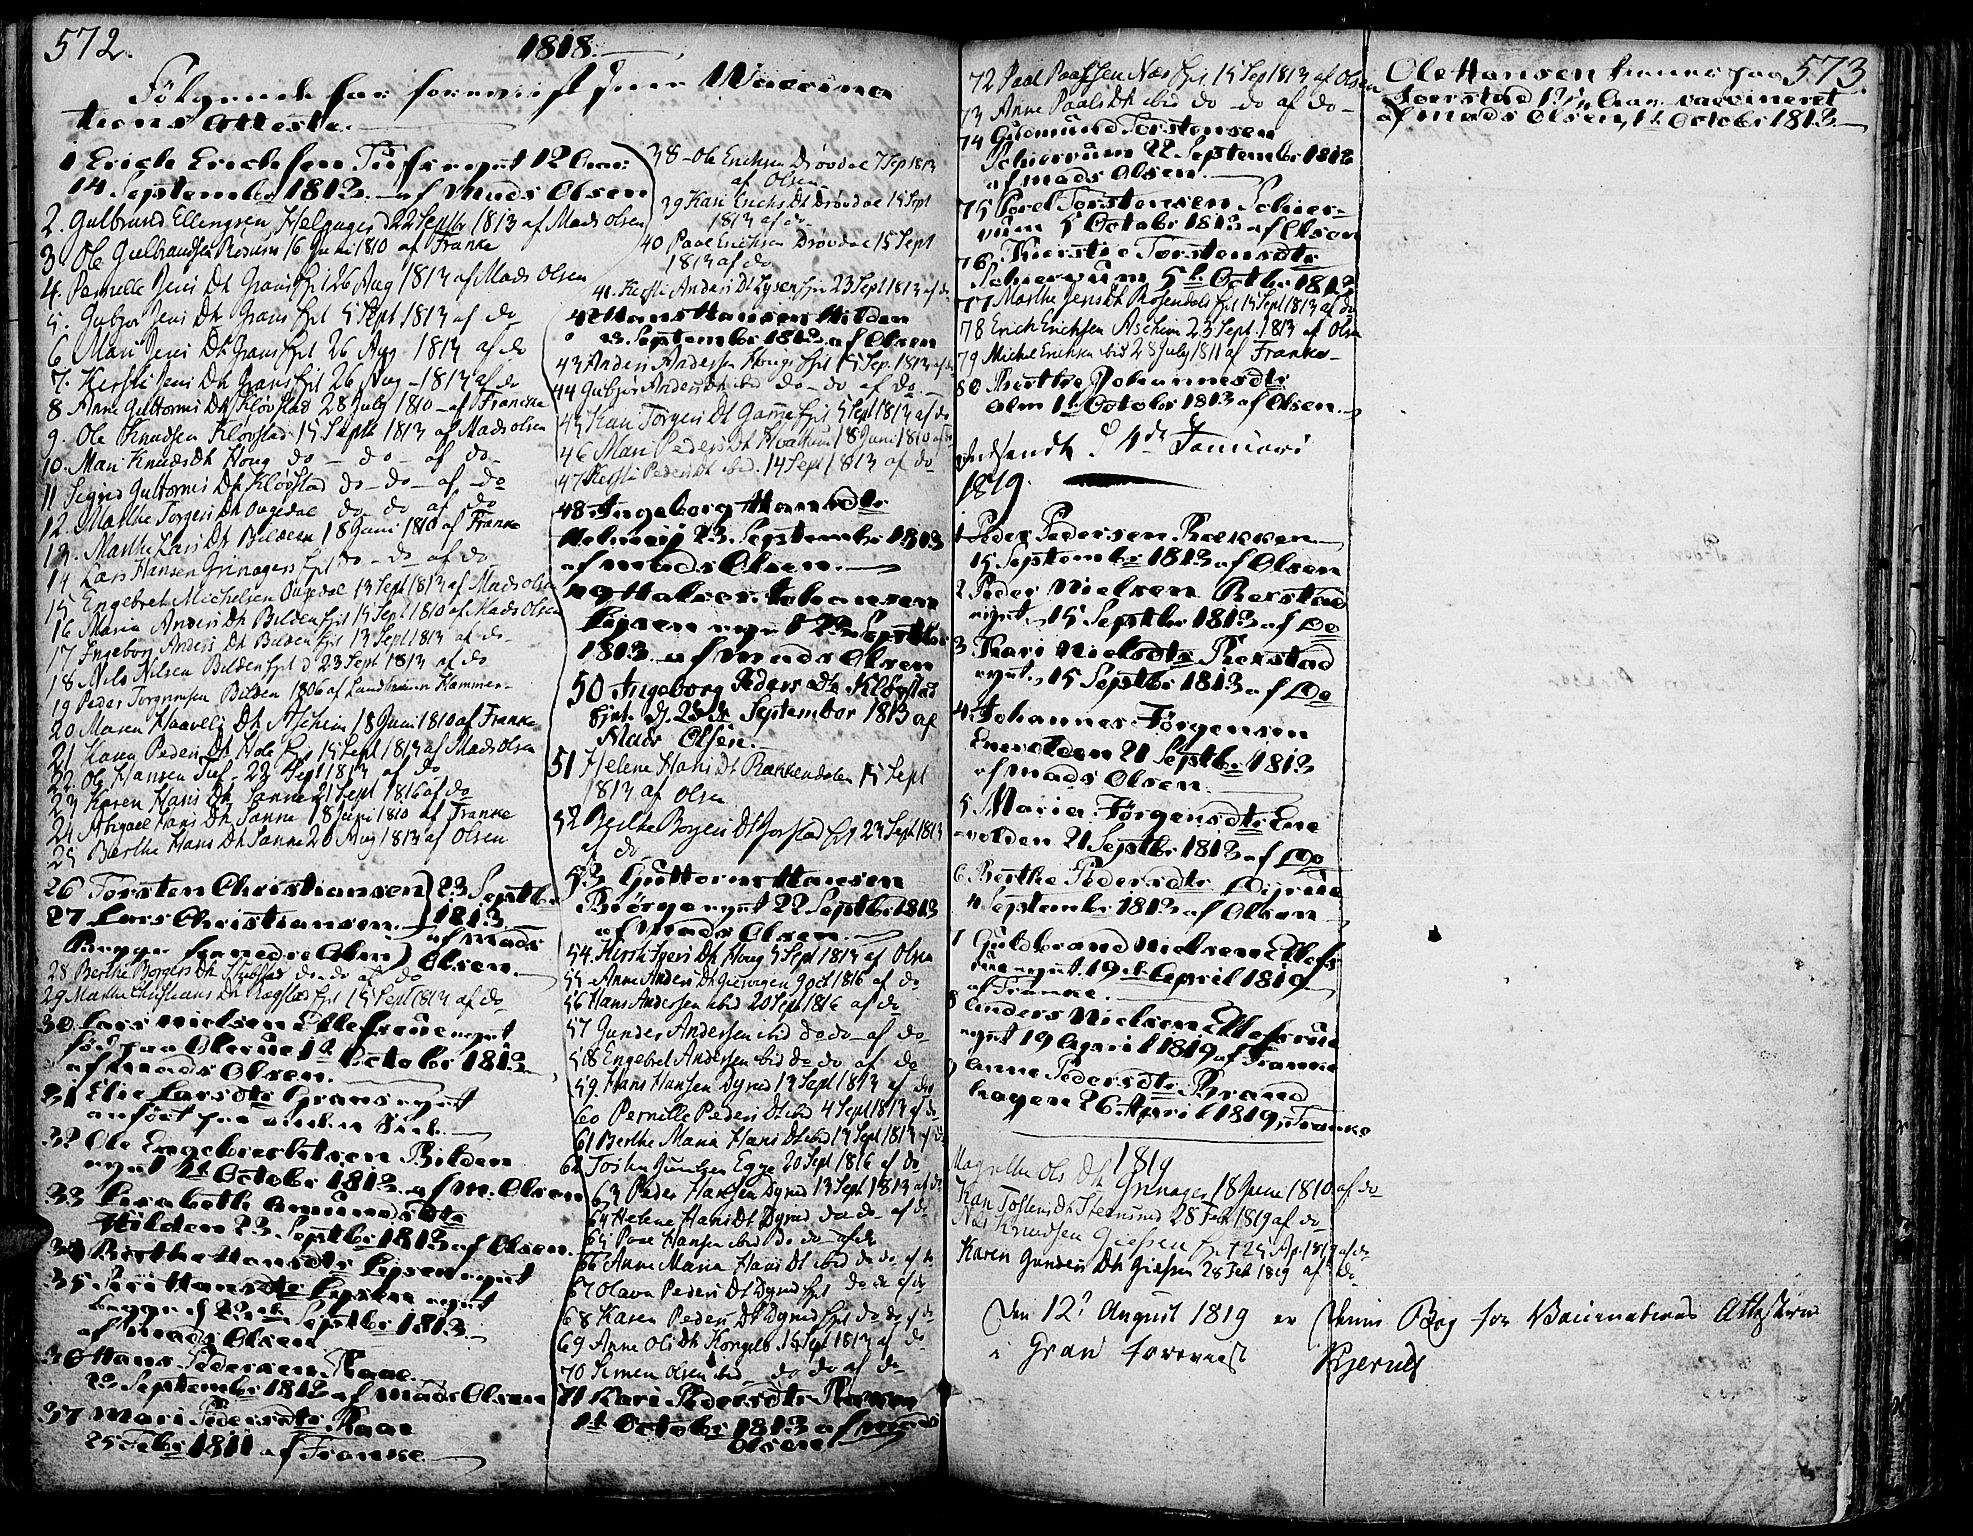 572.
1818
Følgende har foreviist sine Vaccina
tions Atteste.
1 Erich Erichsen Tufs eyet 12 Aar
14 September 1813 af Mads Olsen
2. Gulbrand Ellingsen Helgager d 22 Septbr 1813 af Mads Olsen
3. Ole Gulbrandsen Rosum 16 Juni 1810 af Franke
4. Pernille Jens Dt Grans Eyt 26 Aug 1813 af Mads Olsen
5. Gubjør Jens Dt Grans Eyt 5 Sept 1813 af do
6 Mari Jens Dt Grans Eyt 26 Aug 1813 af do
7. Kersti Jens Dt Grans Eyt 26 Aug 1813 af do
8 Anne Guttorms Dt Kløvstad 28 July 1810 af Francke
9. Ole Knudsen Kløvstad 15 Septb 1813 af Mads Olsen
10. Mari Knuds Dt Houg do - do - af do
11 Segnes Guttorms Dt Kløvstad do - do - af do
12. Marthe Torgers Dt Øugedal do do af do
13. Marthe Lars Dt Bilden 18 Juni 1810 af Franke
14 Lars Hansen Grinagers Eyt do - do af do
15 Engebret Michelsen Ougedal 13 Sept 1813 af Mads Olsen
16 Maria Anders Dt Bilden Eyt 15 Sept 1810 af Mads Olsen
17 Ingebor Anders Dt Bilden Eyt 13 Sept 1813 af do
18 Nils Nilsen Bilden Eyt d 23 Sept 1813 af do
19 Peder Torgersen Bilden 1806 af Landkirurg Hammer
20 Maren Haavels Dt Aschim 18 Juni 1810 af Franke
21 Karen Peders Dt Hole Eyt 15 Sept 1813 af Mads Olsen
22. Ole Hansen Tuf 22 Sept 1813 af do
23 Karen Hans Dt Sanne 21 Sept 1816 af do
24 Abigael Hans Dt Sanne 18 Juni 1810 af Franke
25 Berthe Hans Dt Sanne 26 Aug 1813 af Olsen
26 Torsten Christiansen 23 Septbr
27 Lars Christiansen 1813
Begge fra nedre Alm af Mads Olsen
28 Berthe Borgers Dt do do af do
29 Marthe Christians Dt Rogstad Eyt 15 Sept 1813 af do
30 Lars Nielsen Ellefsrue eyet
fød paa Olerue 1te October 1813
af Mads Olsen.
31 Else Larsdtr Grans eyet
anført paa anden Side
32 Ole Engebrechtsen Bilden
eyet 1te October 1813 af M. Olsen
33 Lisabeth Amundsdtr
Hilden 23 Septbr 1813 af Olsen
34 Berthe Hansdtr Lysen eyet
35 Siri Hansdtr Lysen eyet
begge d 22de Septbr 1813
af Mads Olsen
36 Hans Pedersen Raae
23 September 1813 af Mads Olsen
37 Mari Pedersdtr Raae
25 Febr 1811 af Franke
38 - Ole Erichsen Drøvdal 7 Sept 1813
af Olsen
39 Kari Erichs Dt Drøvdal 15 Sept
1813 af do
40 Paal Erichsen Drøvdal 15 Sept
1813 af do
41. Kersti Anders Dt Lysen Eyt 23 Sept 1813 af do
42 Hans Hansen Hilden
23 September 1813 af Olsen
43 Anders Andersen Hougs Eyt 15 Sep. 1813 af do
44 Gubjør Anders Dt ibid do - do af do
45 Kari Torgers Dt Gamme Eyt 5 Sept 1813 af do
46 Mari Peders Dt Hvattum 18 Juni 1810 af do
47 Kersti Peders Dt ibid. 14 Sept 1813 af do
48 Ingeborg Hansdtr
Helmeij 23 September 1813
af Mads Olsen.
49 Halvor Johansen
Lysen eyet 23 Septbr
1813 af Mads Olsen
50 Ingeborg Peders Dtr Kløvstad
Eyet. d. 23de September 1813 af
Mads Olsen.
51 Helene Hans Dt Rækkendalen 15 Sept
1813 af Olsen
52 Berthe Borgers Dt Jorstad Eyt 23 Sept 1813
af do
53 Guttorm Hansen
Biørge eyet 22 Septbr 1813
af Mads Olsen.
54. Kersti Ivers Dt Houg 5 Sept 1813 af Olsen
55 Anne Anders Dt 9 Oct 1816 af do
56 Hans Andersen ibid 20 Sept 1816 af do
57 Gunder Andersen ibid do do af do
58 Engebret Andersen ibid do do af do
59. Hans Hansen Dyrud 13 Sept 1813 af do
60 Pernille Peders Dt ibid 4 Sept 1813 af do
61 Berthe Maria Hans Dt ibid 13 Sept 1813 af do
62 Tosten Egge 20 Sept 1816 af do
63 Peder Hansen Dyrud 13 Sept 1813 af do
64 Helene Hans Dt Dyrud do do - af do
65 Paal Hansen ibid do do - af do
66 Anne Maria Hans Dt ibid do do af do
67 Olava Peders Dt Dyrud Eyt do do af do
68 Karen Peders Dt Dyrud Eyt do do af do
69 Anne Ols Dt Kongels 15 Sept 1813 af do
70 Semen Olsen ibid do do af do
71 Kari Pedersdtr Ramm
1te October 1813 af Mads
Olsen
72 Paal Paalsen Næs Eyt 15 Sep 1813 af Olsen
73 Anne Paals Dt ibid do - do af do -
74 Gudmund Torstensen
Schiervum 22 September 1813
af Mads Olsen.
75 Torel Torstensen Schier=
vum 5 October 1813 af Olsen
76 Kierstie Torstensdtr
Schiervum 5te Octbr 1813
77 Marthe Jens Dt Rosendals Eyt 15 Sept 1813 af do
78 Erich Erichsen Aschim 23 Sept. 1813 af Olsen
79 Michel Erichsen ibid 28 July 1811 af Franke
80 Berthe Johannesdtr
Alm 1te October 1813 af Olsen
Indsendt d 4de Januari
1819.
1 Peder Pedersen Rækken
15 September 1813 af Olsen
2 Peder Nielsen Rekstad
eyet, 15 Septbr 1813 af Do
3 Kari Nielsdtr Rekstad
eyet, 15 Septbr 1813 af Do
4 Johannes Jørgensen
Enevolden 21 Septbr 1813
af Mads Olsen
5 Maria Jørgensdtr Ene
volden 21 Septbr 1813 af Do
6 Berthe Pedersdtr Dijrud
4 September 1813 af Olsen
7 Guldbrand Nielsen Ellefs
rue eyet. 19de April 1819
af Franke.
8 Anders Nielsen Ellefsrue
eyet 19 April 1819 af Franke
9 Anne Pedersdtr Brand
hagen 26 April 1819, Franke
1819
Magrethe Ols Dt Grinager 18 Juni 1810 af do
Kari Tostens Dt Stensrud 28 Feb 1819 af do
Nils Knudsen Giefsen Eyt 25 Ap. 1819 af do
Karen Gunders Dt Giefsen 28 Feb 1819 af Do
Den 12t August 1819 er denne Bog for Vaccinations Attesterne
i Gran foreviist Bjerved
573.
Ole Hansen tienner paa
Joerstad 17 1/2 Aar vaccineret
af Mads Olsen, 1te October 1813